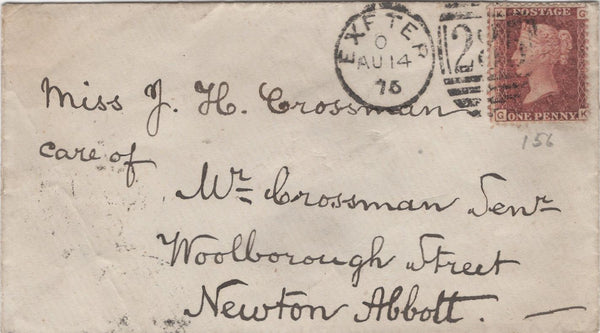 EXETER
O
AU 14
75
28
POSTAGE
K G
G K
ONE PENNY
156
Miss J. H. Crossman
care of
Mr Crossman Senr
Woolborough Street
Newton Abbott. —